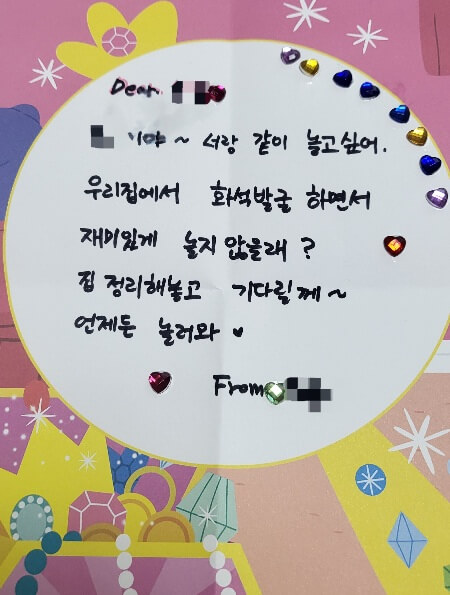 Dear
야~ 너랑 같이 놓고싶어.
우리집에서 화석발굴 하면서
재미있게 놀지 않을래?
집 정리해놓고 기다릴께~
언제든 놀러와 ♥
From